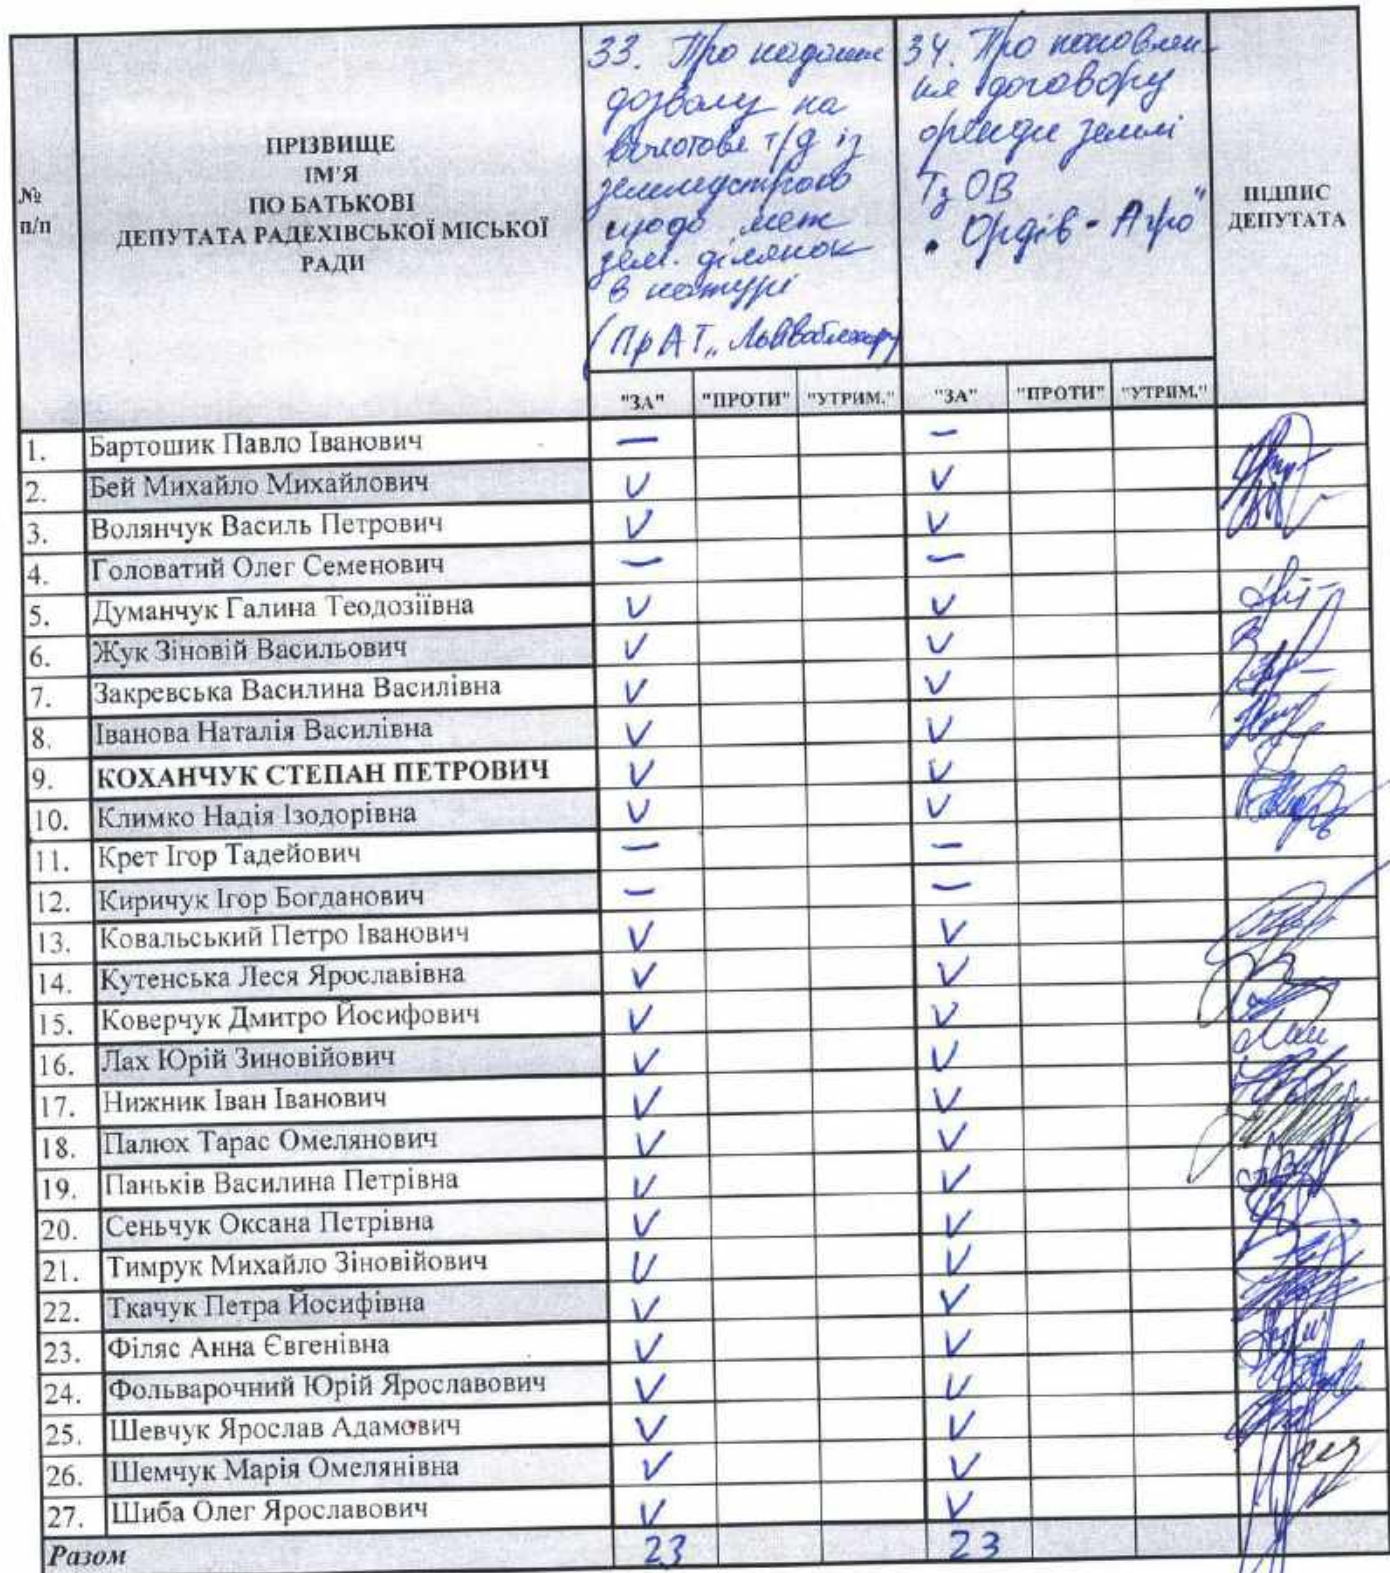 №
п/п
ПРІЗВИЩЕ
ІМ'Я
ПО БАТЬКОВІ
ДЕПУТАТА РАДЕХІВСЬКОЇ МІСЬКОЇ
РАДИ
33. Про надання
дозволу на
т/д із
землеустрою
щодо меж
зем. ділянок
в натурі
(ПрАТ „
34. Про поновлен-
ня договору
оренди землі
ТзОВ
"Ордів - Агро"
ПІДПИС
ДЕПУТАТА
"ЗА" "ПРОТИ" "УТРИМ." "ЗА" "ПРОТИ" "УТРИМ."
1. Бартошик Павло Іванович — —
2. Бей Михайло Михайлович V V
3. Волянчук Василь Петрович V V
4. Головатий Олег Семенович — —
5. Думанчук Галина Теодозіївна V V
6. Жук Зіновій Васильович V V
7. Закревська Василина Василівна V V
8. Іванова Наталія Василівна V V
9. КОХАНЧУК СТЕПАН ПЕТРОВИЧ V V
10. Климко Надія Ізодорівна V V
11. Крет Ігор Тадейович — —
12. Киричук Ігор Богданович — —
13. Ковальський Петро Іванович V V
14. Кутенська Леся Ярославівна V V
15. Коверчук Дмитро Йосифович V V
16. Лах Юрій Зиновійович V V
17. Нижник Іван Іванович V V
18. Палюх Тарас Омелянович V V
19. Паньків Василина Петрівна V V
20. Сеньчук Оксана Петрівна V V
21. Тимрук Михайло Зіновійович V V
22. Ткачук Петра Йосифівна V V
23. Філяс Анна Євгенівна V V
24. Фольварочний Юрій Ярославович V V
25. Шевчук Ярослав Адамович V V
26. Шемчук Марія Омелянівна V V
27. Шиба Олег Ярославович V V
Разом 23 23